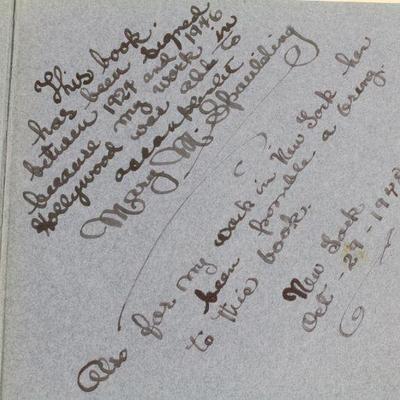 This book.
has been signed
between 1924 and 1946
because my work in
Hollywood was able to
Mary M. Spaulding
Also for my work in New York has
been possible a bring
to this book.
New York
Oct - 29 - 194